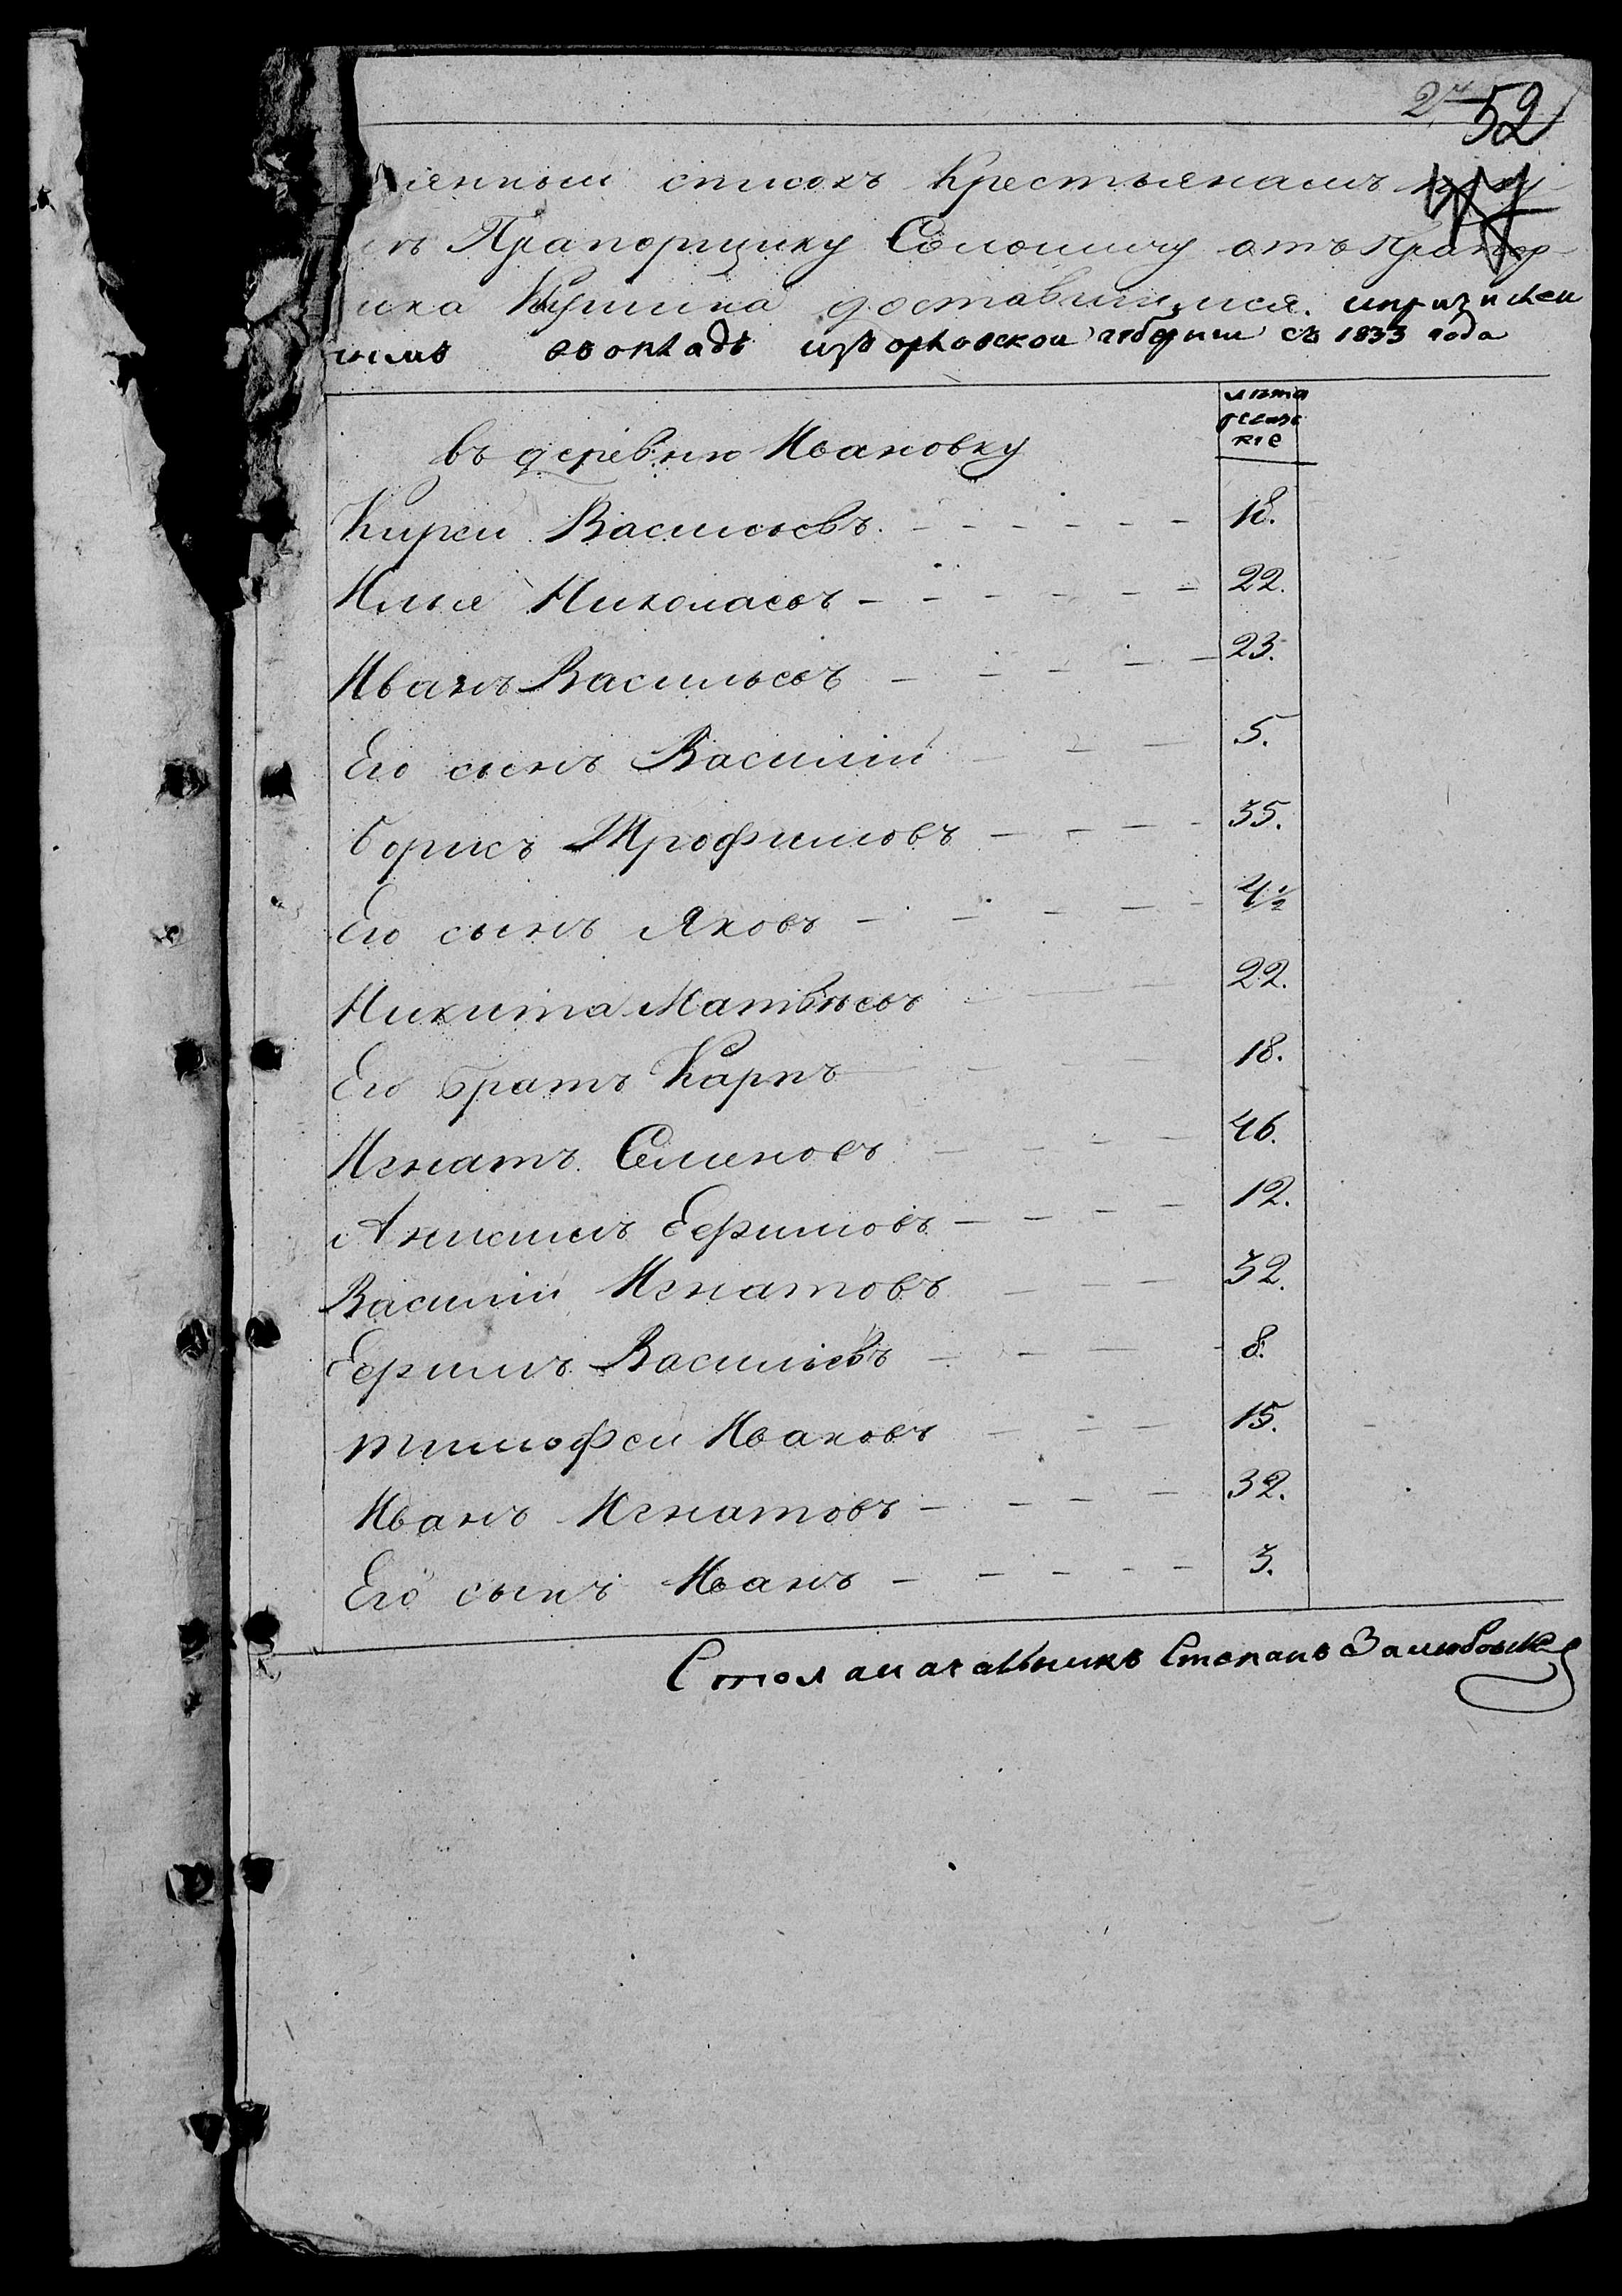 52
менный списокъ Крестьянамъ
Прапорщику Соломину отъ Прапор-
щика доставшимся. и причислен
нымъ въ окладъ изъ орловской губернии съ 1833 года
лѣта
ревизс
кіе
въ деревню Ивановку
Кирей Васильевъ - - - - - - 18.
Илья Николаевъ - - - - - - 22.
Иванъ Васильевъ - - - - - 23.
Его сынъ Василій - - - 5.
Борисъ Трофимовъ - - - - 35.
Его сынъ Яковъ - - - - - 4½
Никита Матвѣевъ - - - 22.
Его братъ Карпъ - - - 18.
Игнатъ Семеновъ - - - - 46.
Анисимъ Ефимовъ - - - - 12.
Василій Игнатовъ - - - 32.
Ефимъ Васильевъ - - - - 8.
Тимофей Ивановъ - - - 15.
Иванъ Игнатовъ - - - - 32.
Его сынъ Иванъ - - - - - 3.
Столоначальникъ Степанъ